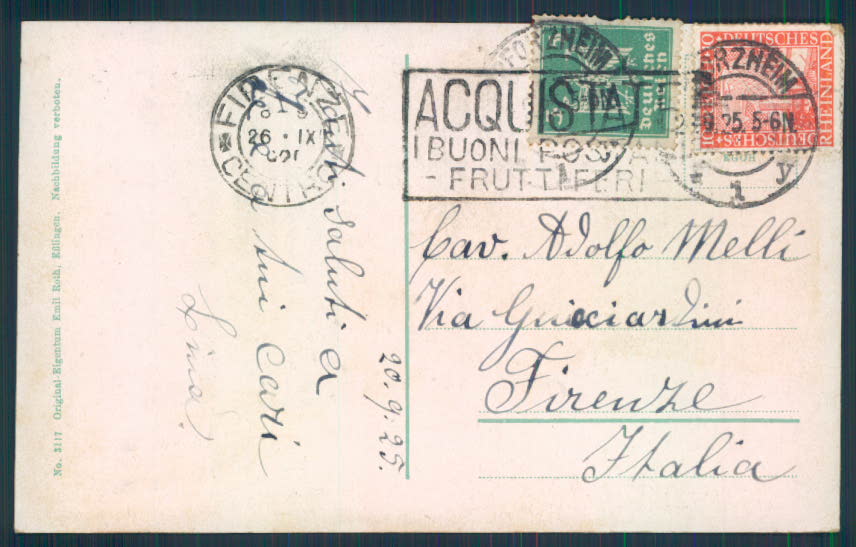 No. 3117 Original-Eigentum Emil Roth, Eßlingen. Nachbildung verboten.
FIRENZE
26 · IX
CENTRO
saluti a
tui cari
Lina.
20.9.25.
ACQUISTAT
I BUONI POSTA
- FRUTTIFERI
PFORZHEIM
5-6N.
1
deutsches
reich
DEUTSCHES
RHEINLAND
PFORZHEIM
9.25. 5-6N.
* 1 y
Cav. Adolfo Melli
Via Guicciardini
Firenze
Italia